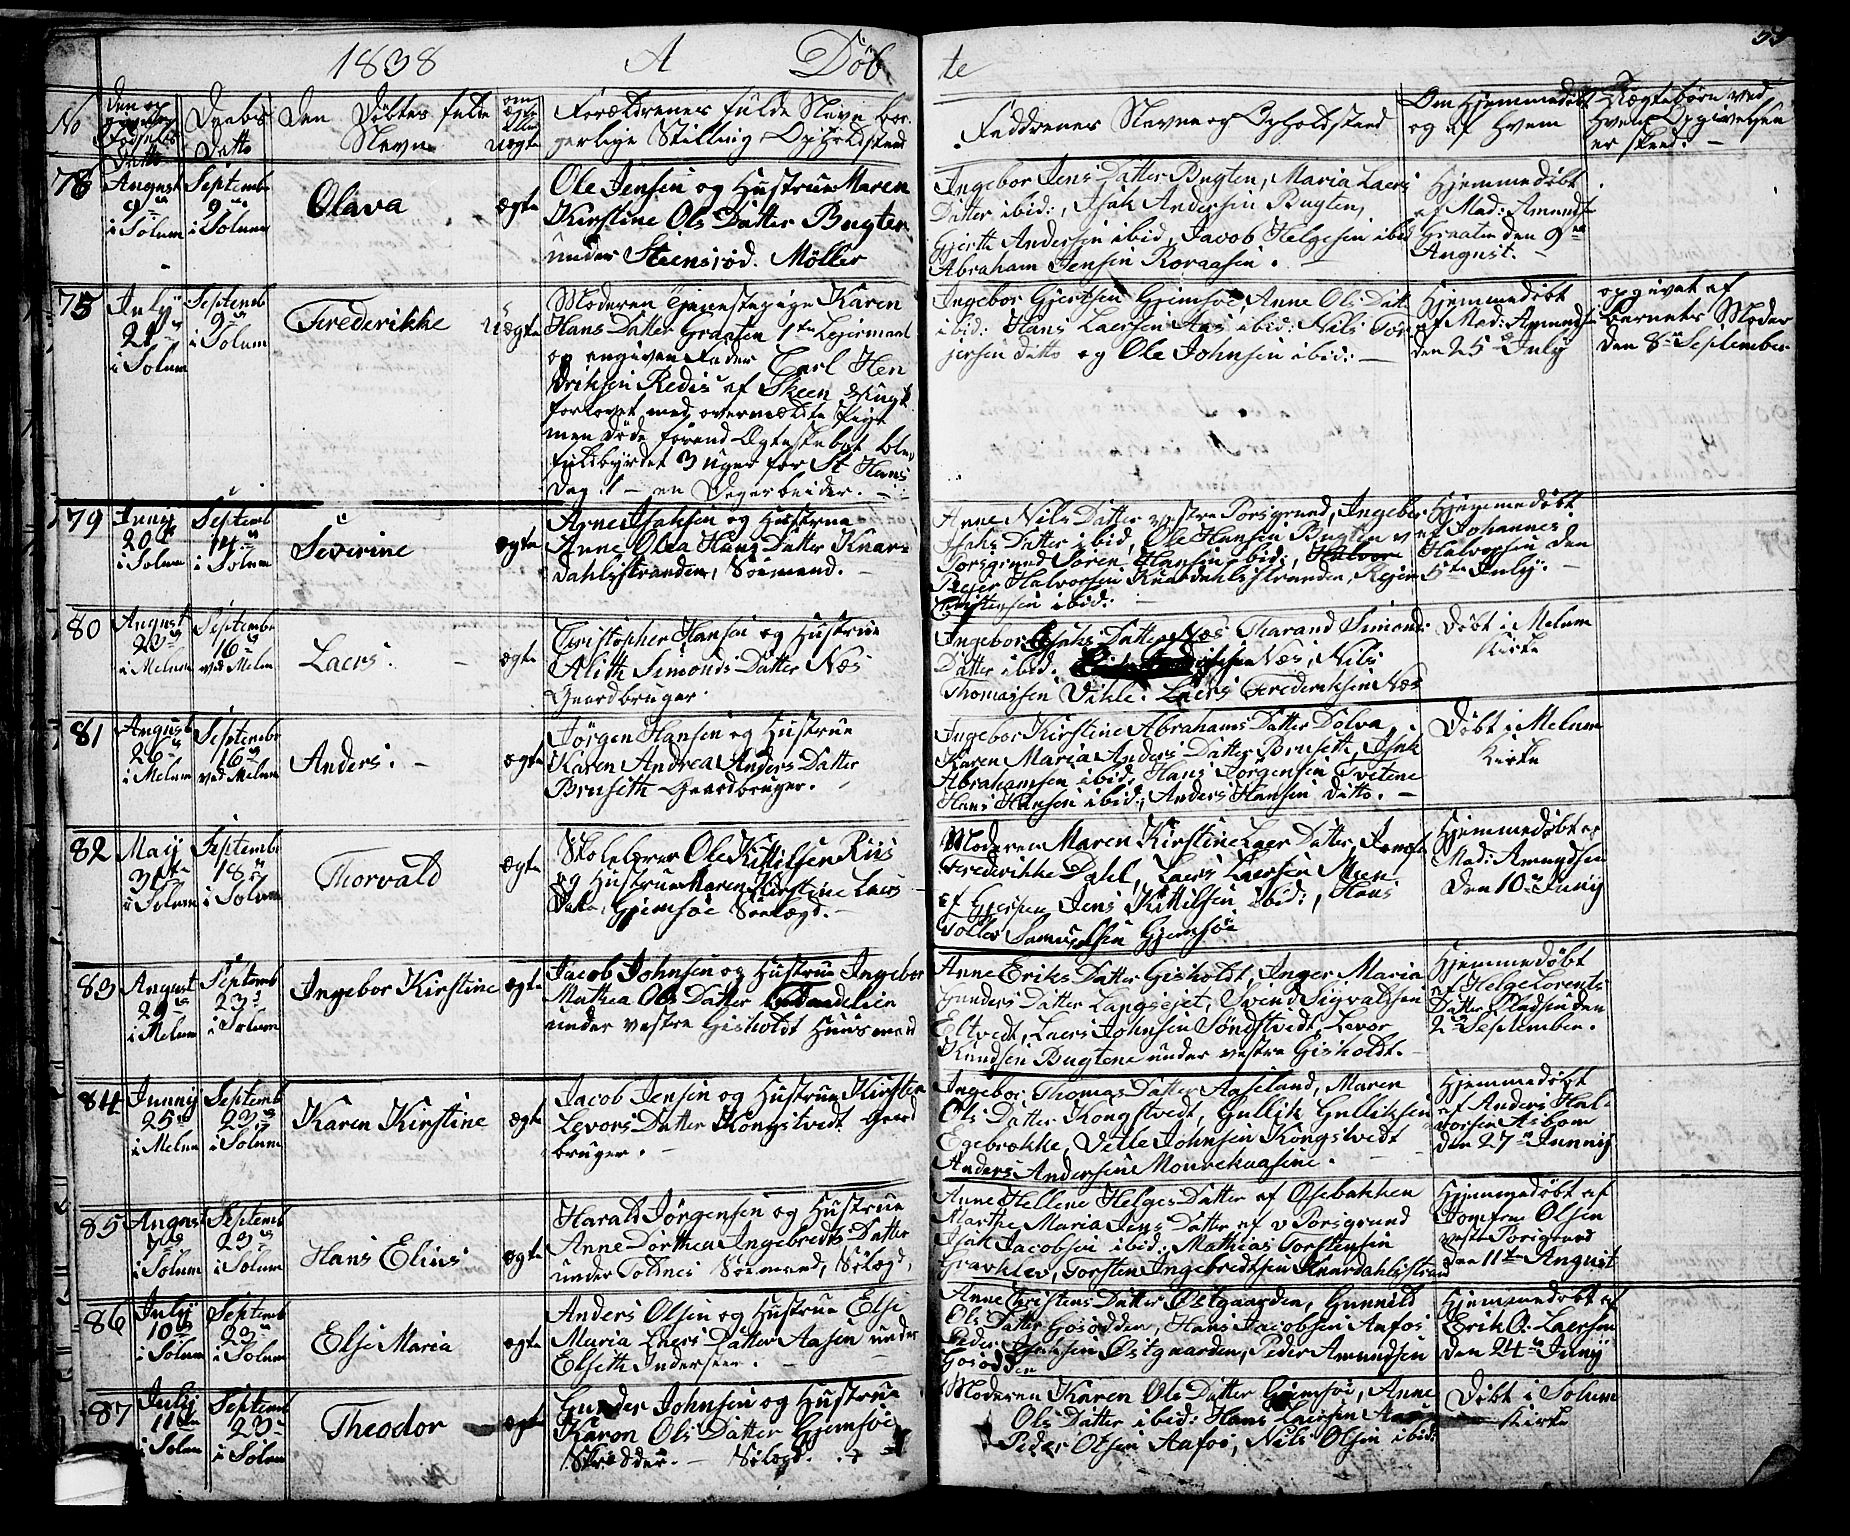 1838 A Døb te
No
Den Døbtes fulde
Navn
om
ægte
eller
uægte
Forældrenes fulde Navn bor-
gerlige Stilling Opholdsted
Faddrenes Navne og Opholdsted
Om Hjemmedøbt
og af Hvem
Uægtebørn ved
Hvem Opgivelsen
er skeed.
78
August
9de
i Solum
Septembr
9de
i Solum
Olava
ægte
Ole Jensen og Hustrue Maren
Kirstine Ols Datter Bugten
under Steensrød. Møller
Ingebor Jens Datter Bugten, Maria Laers
Datter ibid:, Isak Andersen Bugten,
Gierth Andersen ibid, Jacob Helgesen ibid
Abraham Jensen Roraasen.
Hjemmedøbt
af Mad: Amunds
Graaten den 9de
August.
75
July
21
i Solum
Septemb
9
i Solum
Frederikke
Uægte
Moderen Tjenestepige Karen
Hans Datter Graaten 1ste Leiermaal
og angiven Fader Carl Hen
driksen Redis af Skeen
forlovet med overmældte Pige
men døde førend Ægteskabet blev
fuldbyrdet 3 uger før St Hans
Dag
Ingebor Giertsen Gjemsøe, Anne Ols Datt
ibid: Hans Laersen Aas ibid: Nils Tor
jersen ditto og Ole Johnsen ibid:
Hjemmedøbt
af Mad: Amunds
den 25 July
opgivet af
barnets Moder
den 8de September
79
Juny
20
i Solum
Septemb
14
i Solum
Severine
ægte
Arne Isaksen og Hustrue
Anne Olea Hans Datter Knar-
dahlsstranden, Søemand.
Anne Nils Datter vestre Porsgrund, Ingebor
Isaks Datter ibid, Ole Hansen Bugten v
Porsgrund Søren Hansen ibid:, Halvor
Peder Halvorsen Knardahlsstranden, Rejer
Christensen ibid:
Hjemmedøbt
af Johannes
Halvorsen den
5te July.
80
August
23
i Melum
Septembr
16
ved Melum
Laers.
ægte
Christopher Hansen og Hustrue
Alith Simonds Datter Næs
Gaardbruger.
Ingebor Isaks Datter Næs Tarand Simonds
Datter ibid. Næs, Nils
Thomassen Vikle. Laers Frederiksen Næs
Døbt i Melum
Kirke
81
August
26
i Melum
Septembr
16
ved Melum
Anders.
ægte
Jørgen Hansen og Hustrue
Karen Andrea Anders Datter
Bruseth Gaardbruger.
Ingebor Kirstine Abrahams Datter Dolva
Karen Maria Anders Datter Bruseth, Isak
Abrahamsen ibid, Hans Jørgensen Tvetene
Hans Hansen ibid:, Anders Hansen ditto.
Døbt i Melum
Kirke
82
Maij
31te
i Solum
Septembr
18
i Solum
Thorvald
ægte
Skolelærer Ole Kittilsen Riis
og Hustrue Maren Kirstine Laers
Datt. Gjemsøe Søelægd.
Moderen Maren Kirstine Laer Datter, Jomfr
Frederikke Dahl, Laers Laersen Moen
af Gjerpen Jens Kittilsen ibid:, Hans
Tollev Samuelsen Gjemsøe
Hjemmedøbt af
Mad: Amundsen
den 10 Juny
83
August
29
i Melum
Septemb
23
i Solum
Ingebor Kirstine
ægte
Jacob Johnsen og Hustrue Ingebor
Mathea Ols Datter
under vestre Gisholdt Huusmand
Anne Eriks Datter Gisholdt, Inger Maria
Gunders Datter Langsejet, Svend Sigvaldsen
Eltvedt, Laers Johnsen Søndstvedt, Levor
Knudsen Bugtene under vestre Gisholdt.
Hjemmedøbt
af Helge Lorents
Datter Pladsen den
2 September.
84
Junny
25
i Melum
Septemb
23
i Solum
Karen Kirstine
ægte
Jacob Jensen og Hustrue Kirstine
Levors Datter Kongstvedt Gaard
bruger.
Ingebor Thomas Datter Aaseland, Maren
Ols Datter Kongstvedt, Gullik Gulliksen
Egebrække, Vetle Johnsen Kongstvedt
Anders Andersen Mourekaasene.
Hjemmedøbt
af Anders Hal-
vorsen Asbom
den 27 Junny
85
August
i Solum
Septemb
23
i Solum
Hans Elius
ægte
Harald Jørgensen og Hustrue
Anne Dorthea Ingebredts Datter
under Tollnes Søemand, Sølægd,
Anne Hellene Helges Datter af Osebakken
Marthe Maria Jens Datter af v Porsgrund
Isak Jacobsen ibid: Mathias Torstensen
Gravklev, Torsten Ingebredtsen Knardahlsstrand
Hjemmedøbt af
Jomfrue Olsen
vestre Porsgrund
den 11te August
86
July
10
i Solum
Septemb
23
i Solum
Else Maria
ægte
Anders Olsen og Hustrue Else
Maria Laers Datter Aasen under
Elseth Inderster.
Anne Christens Datter Østgaarden, Gunnild
Ols Datter Gosodden, Hans Jacobsen Aafos
Peder Isaksen Østgaarden, Peder Amundsen
Gosodden
Hjemmedøbt af
Erik O. Laersen
den 24 Juny
87
July
11te
i Solum
Septemb
23
i Solum
Theodor
ægte
Gunder Johnsen og Hustrue
Karen Ols Datter Gjemsøe
Skrædder. Sølægd.
Moderen Karen Ols Datter Gjemsøe, Anne
Ols Datter ibid: Hans Laersen Aas
Peder Olsen Aafos, Nils Olsen ibid:
Døbt i Solum
Kirke